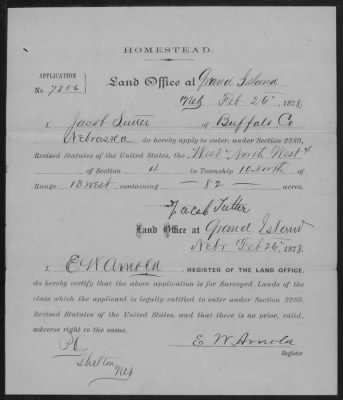 HOMESTEAD.
APPLICATION
No. 7256
Land Office at Grand Island
Neb Feb 26, 1878,
I, Jacob Tutter, of Buffalo Co
Nebraska do hereby apply to enter, under Section 2289,
Revised Statutes of the United States, the West North West 4
of Section 4 in Township 10 North of
Range 13 West, containing — 82 — acres.
Jacob Tutter
Land Office at Grand Island
Nebr Feb 26, 1878.
I, E W Arnold, REGISTER OF THE LAND OFFICE,
do hereby certify that the above application is for Surveyed Lands of the
class which the applicant is legally entitled to enter under Section 2289,
Revised Statutes of the United States, and that there is no prior, valid,
adverse right to the same.
E. W. Arnold
Register
Shelton
Neb